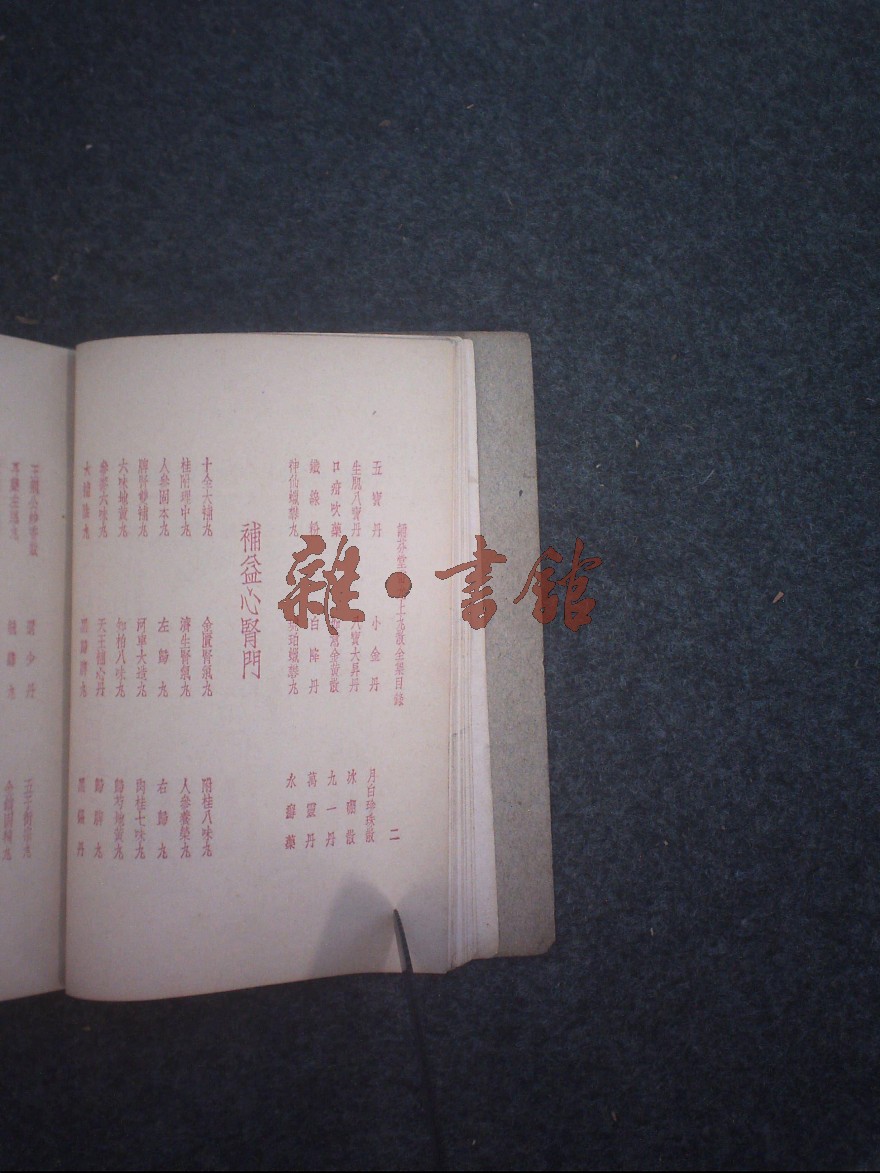 錫芬堂上丸散全集目錄
二
五寶丹 小金丹 月白珍珠散
生肌八寶丹 八寶大昇丹 冰硼散
口疳吹藥 金黃散 九一丹
綠粉 白降丹 萬靈丹
神仙蠟礬丸 琥珀蠟礬丸 水鷄藥
補益心腎門
十全大補丸 金匱腎氣丸 附桂八味丸
桂附理中丸 濟生腎氣丸 人參養榮丸
人參固本丸 左歸丸 右歸丸
脾腎雙補丸 河車大造丸 肉桂七味丸
六味地黃丸 知柏八味丸 歸芍地黃丸
參麥六味丸 天王補心丹 歸脾丸
大補陰丸 黑歸脾丸 黑錫丹
還少丹
雜·書館